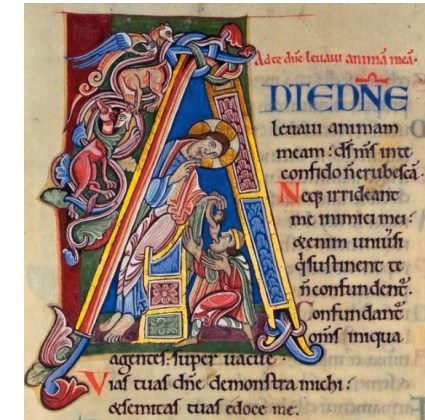 Ad te dñe levavi animã meã.
DTEDNE
levavi animam
meam: ds ms inte
confido ñ erubescã.
Neq irrideant
me inimici mei:
&enim univsi
q sustinent te
ñ confundent.
Confundant
oms iniqua
agentes: super vacue.
Vias tuas dñe demonstra michi:
&semitas tuas edoce me.